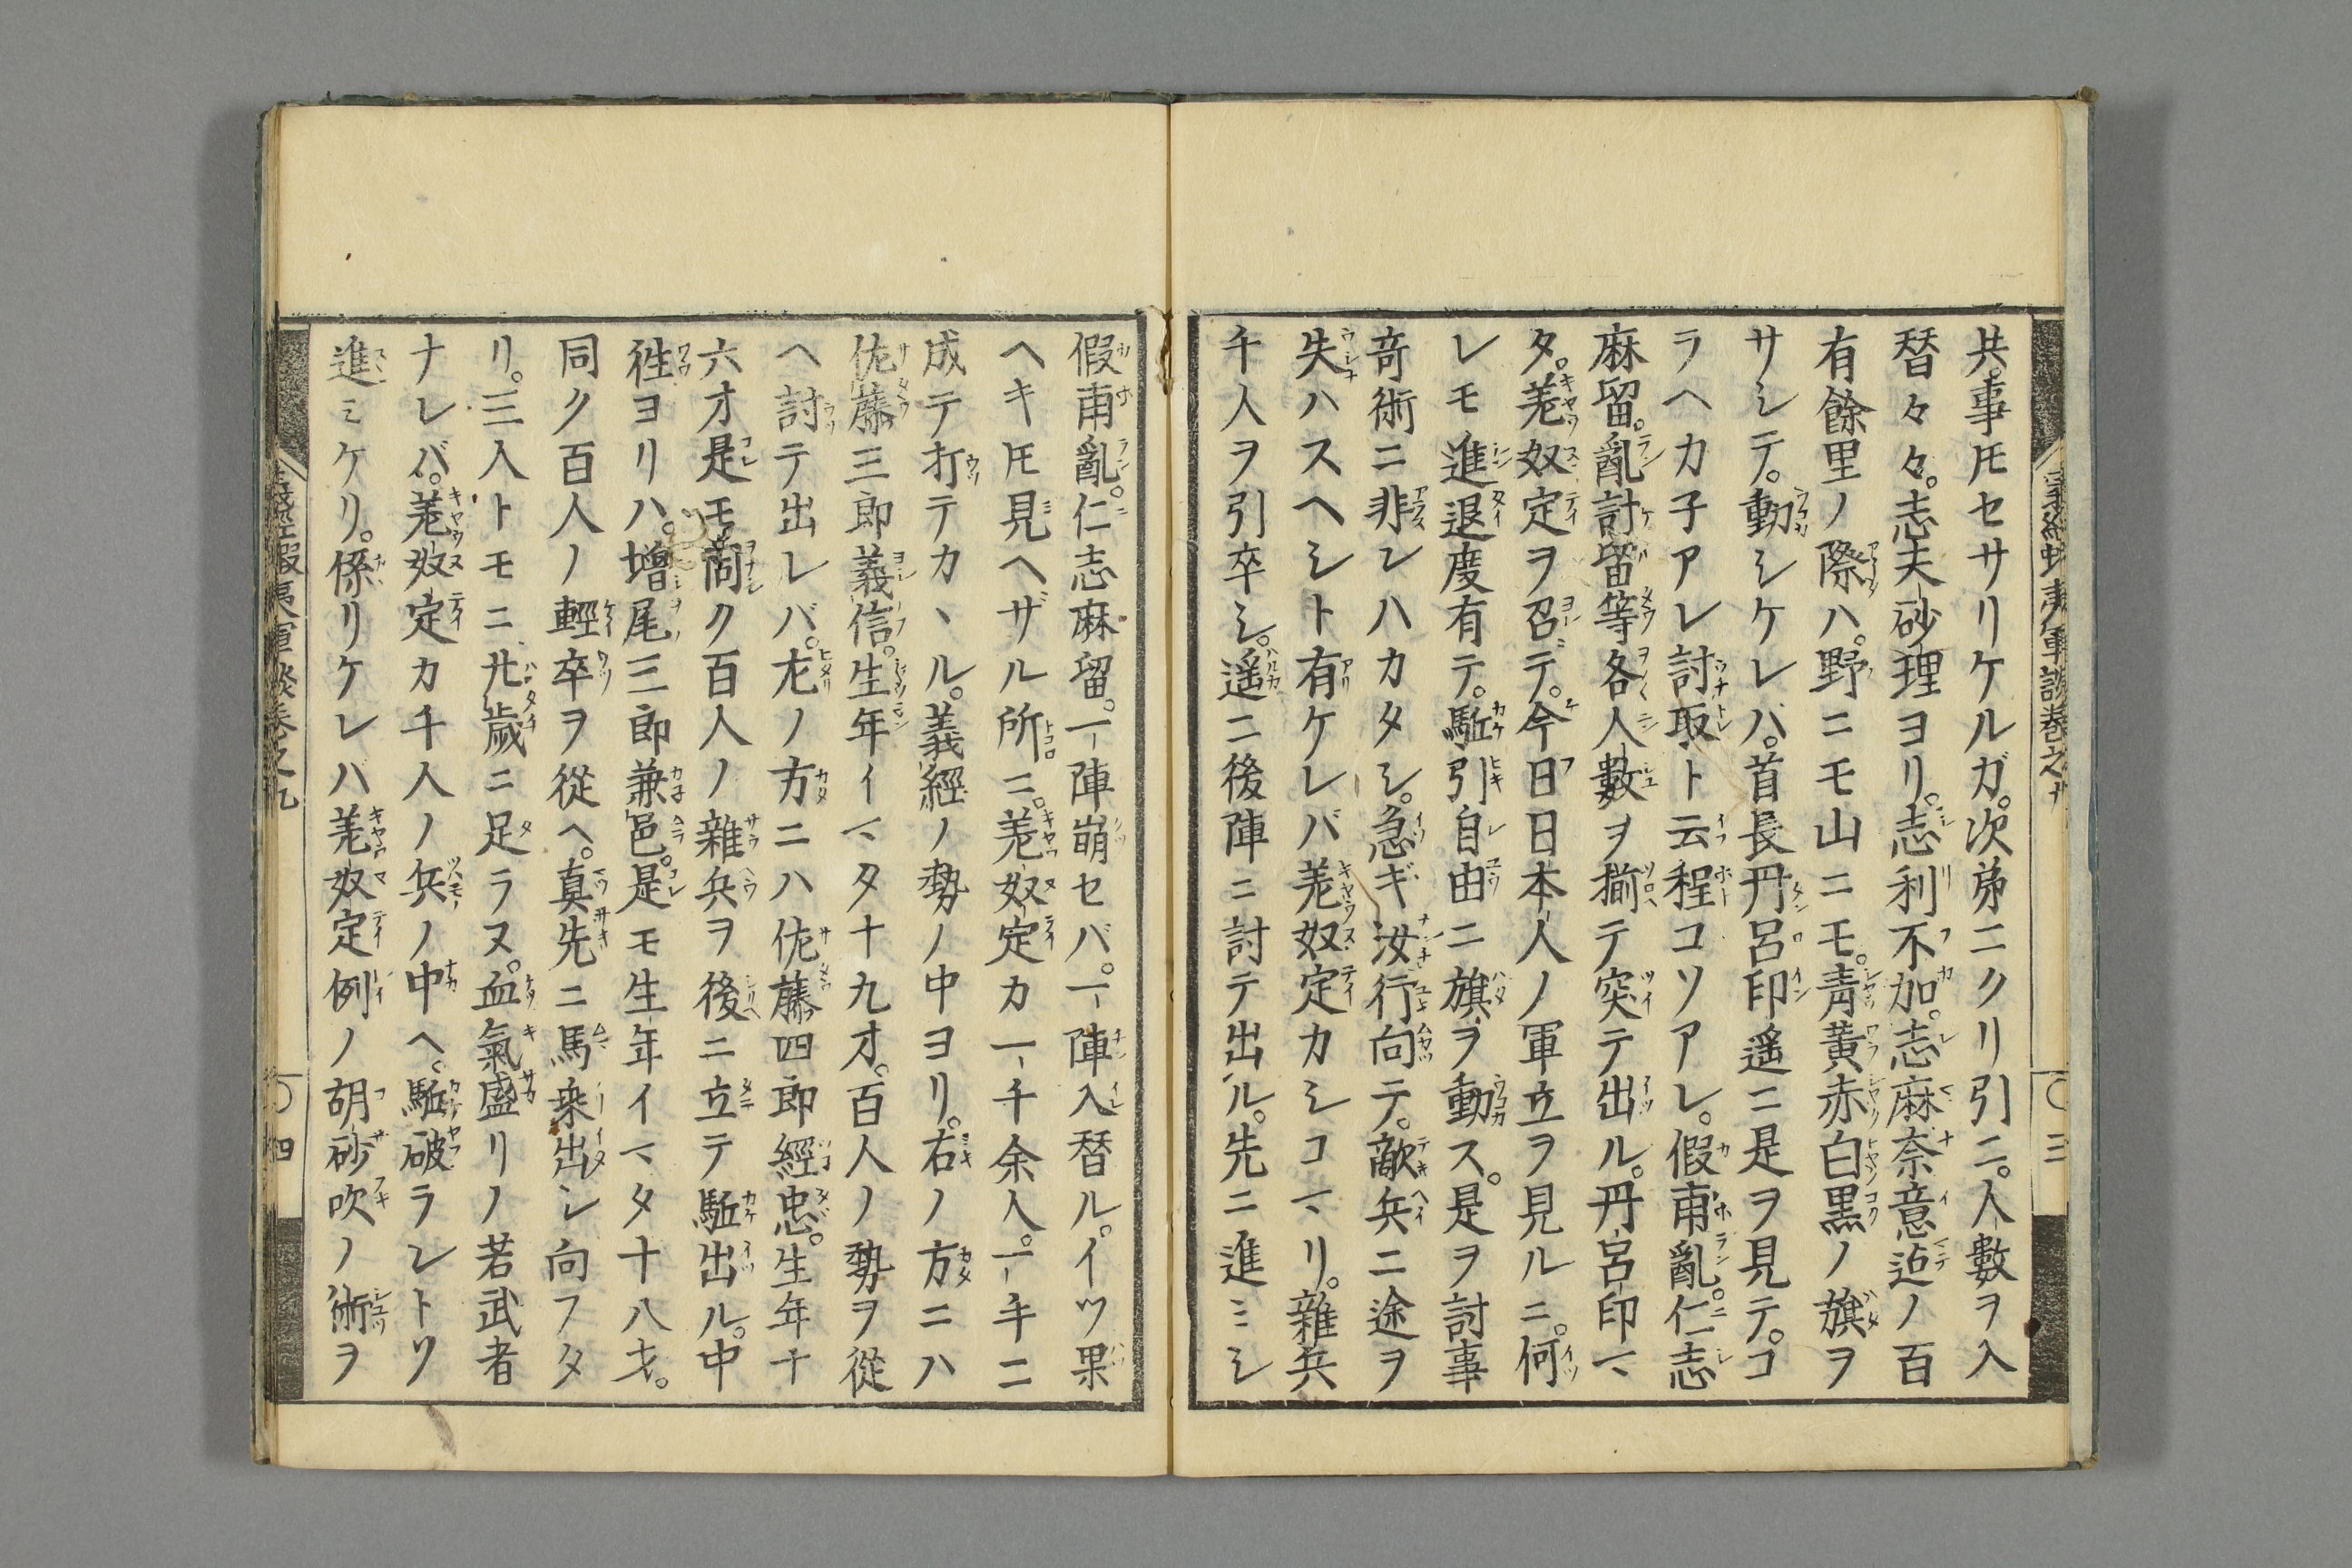 共。事𪜈セサリケルガ。次第ニクリ引ニ。人數ヲ入
替々々。志夫砂理ヨリ。志利不加。志麻奈意迠ノ百
有餘里ノ際ハ。野ニモ山ニモ。靑黃赤白黒ノ旗ヲ
サシテ。動シケレバ。首長丹呂印遥ニ是ヲ見テ。コ
ラヘカ子アレ討取ト云程コソアレ。假甫亂。仁志
麻留。亂計留等各人數ヲ揃テ突テ出ル。丹呂印マ
タ。羗奴定ヲ召テ。今日日本人ノ軍立ヲ見ルニ。何
レモ進退度有テ。駈引自由ニ旗ヲ動ス。是ヲ討事
竒術ニ非レハカタシ。急ギ汝行向テ。敵兵ニ途ヲ
失ハスヘシト有ケレバ羗奴定カシコマリ。雜兵
千人ヲ引卒シ。遥ニ後陣ニ討テ出ル。先ニ進ミシ
假甫亂。仁志麻留。一陣崩セバ。一陣入替ル。イツ果
ヘキ𪜈見ヘザル所ニ。羗奴定カ一千余人。一手ニ
成テ打テカヽル。義經ノ勢ノ中ヨリ。右ノ方ニハ
佐藤三郎義信。生年イマタ十九才。百人ノ勢ヲ從
ヘ討テ出レバ。左ノ方ニハ佐藤四郎經忠。生年十
六才是モ同ク百人ノ雜兵ヲ後ニ立テ駈出ル。中
徃ヨリハ。增尾三郎兼邑。是モ生年イマタ十八才。
同ク百人ノ輕卒ヲ從ヘ。真先ニ馬乗出シ向フタ
リ。三人トモニ廿歲ニ足ラヌ。血氣盛リノ若武者
ナレバ。羗奴定カ千人ノ兵ノ中ヘ。駈破ラレトソ
進ミケリ。係リケレハ羗奴定例ノ胡砂吹ノ術ヲ